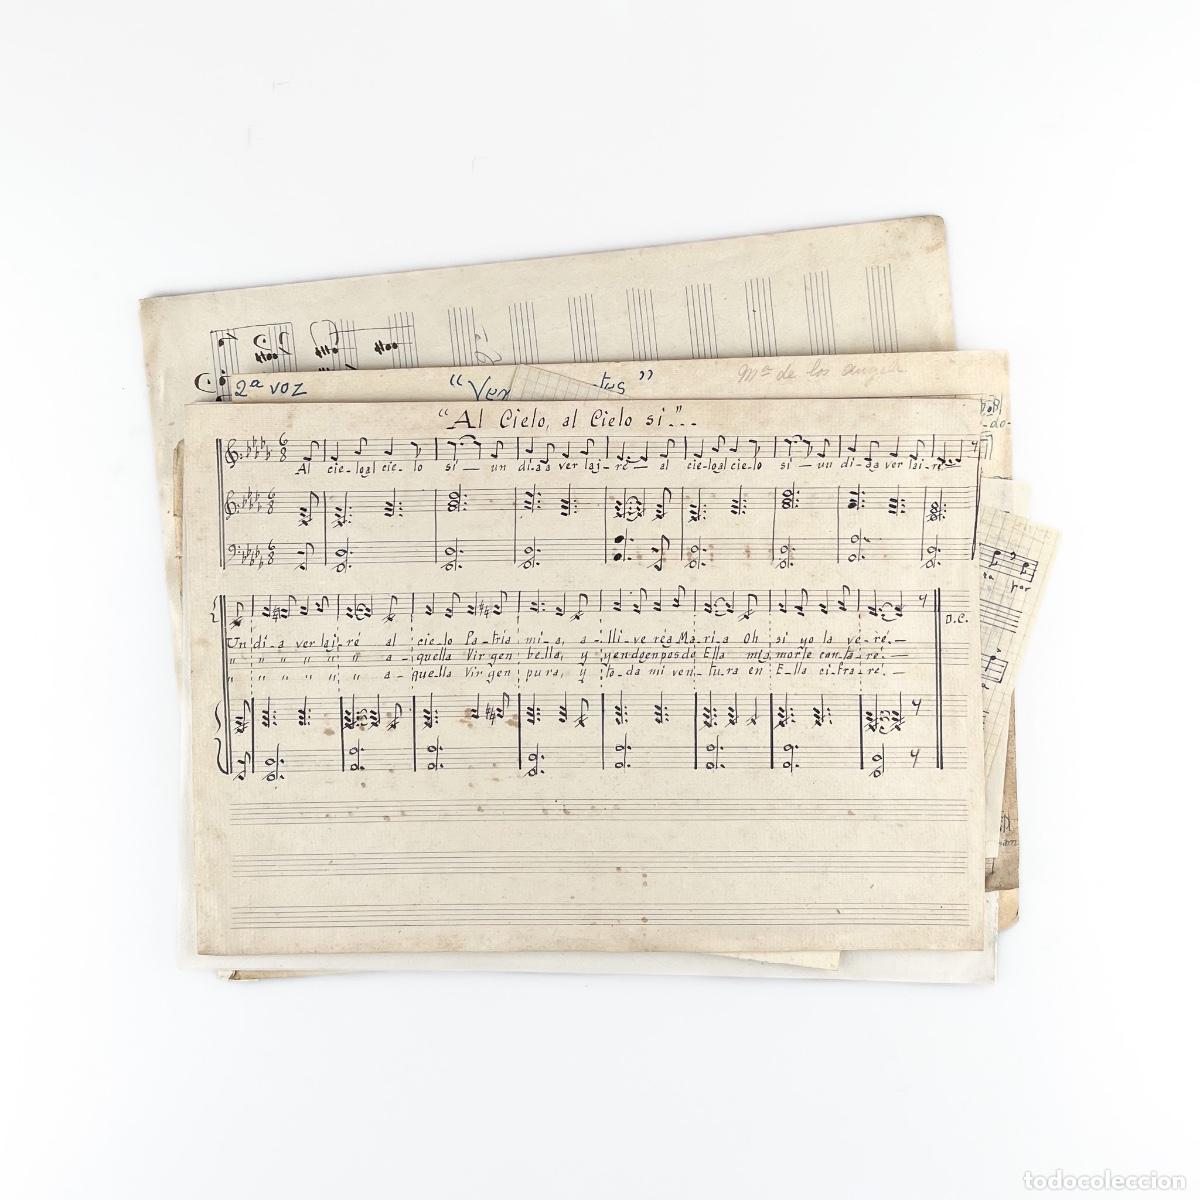 Mª de los Angeles
2ª voz
"Al Cielo, al Cielo si"...
Al cie-lo al cie-lo si — un di-a a ver la i-ré — al cie-lo al cie-lo si — un di-a a ver la i-ré
Un di-a ver la i-ré al cielo Pa-tria mi-a, a-lli ve ré a Ma-ri-a Oh si yo la ve-ré.—
" " " " " " a-quella Vir-gen bella, y yendo en pos de Ella mi a morle can-ta-ré.—
" " " " " " a-quella Vir-gen pura, y to-da mi ven-tura en Ella ci-fra-ré.—
D.C.
-do-
por
todocoleccion